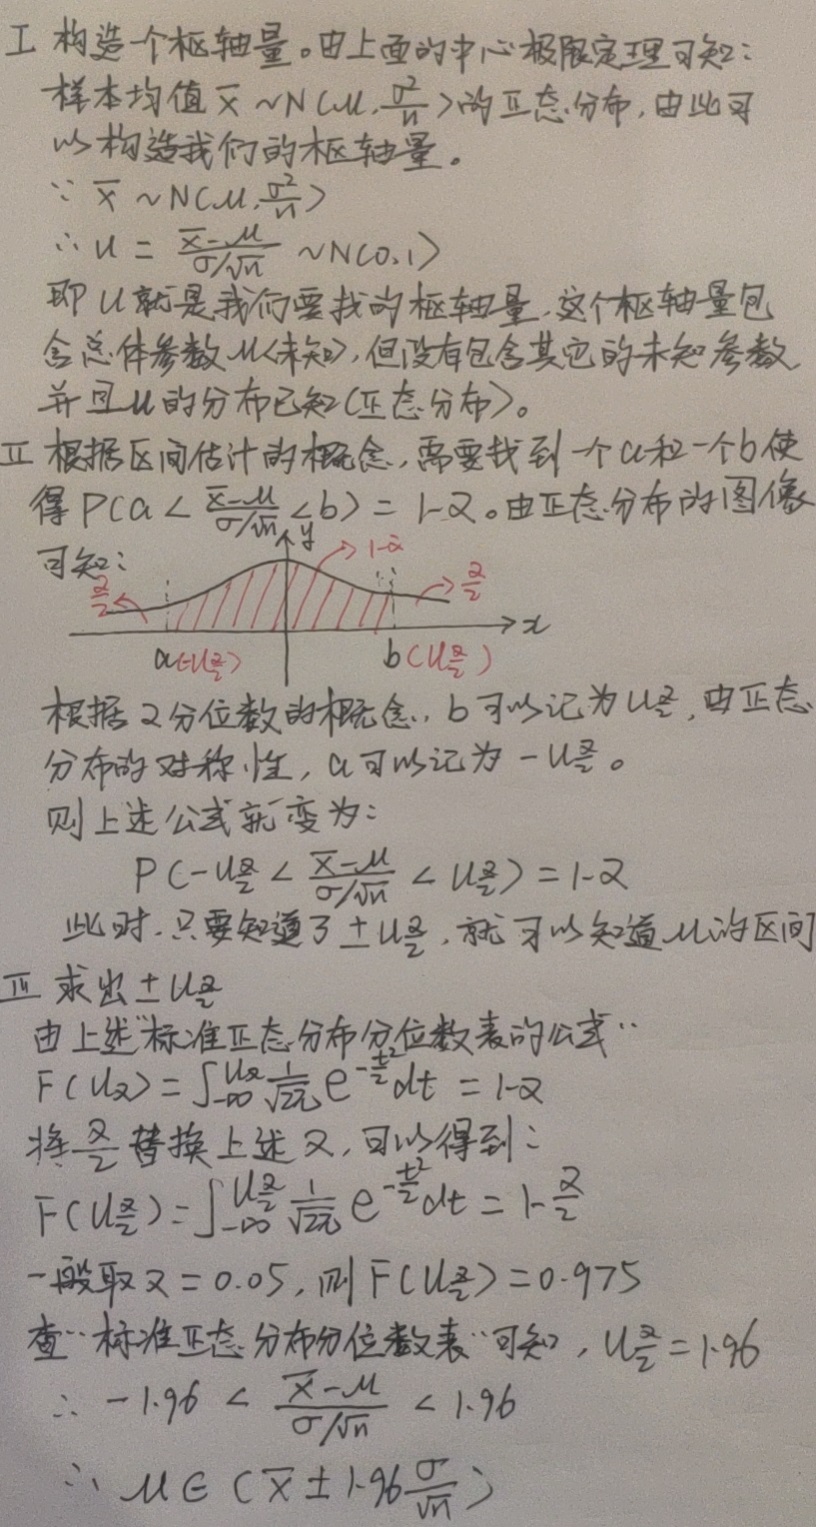 I 构造一个枢轴量。由上面的中心极限定理可知：
样本均值 x̄ ~N(μ, σ²/n)的正态分布，由此可
以构造我们的枢轴量。
∵ x̄ ~N(μ, σ²/n)
∴ u = (x̄-μ)/(σ/√n) ~N(0,1)
即u就是我们要找的枢轴量，这个枢轴量包
含总体参数μ(未知)，但没有包含其它的未知参数
并且u的分布已知(正态分布)。
II 根据区间估计的概念，需要找到一个a和一个b使
得 P(a < (x̄-μ)/(σ/√n) < b) = 1-α。由正态分布的图像
可知：
y
1-α
α/2
α/2
x
a(-u_{α/2})
b(u_{α/2})
根据α分位数的概念，b可以记为u_{α/2}，由正态
分布的对称性，a可以记为 -u_{α/2}。
则上述公式就变为：
P(-u_{α/2} < (x̄-μ)/(σ/√n) < u_{α/2}) = 1-α
此时，只要知道了 ±u_{α/2}，就可以知道μ的区间
III 求出 ±u_{α/2}
由上述"标准正态分布分位数表的公式"
F(u_α) = ∫_{-∞}^{u_α} 1/√2π e^{-t²/2} dt = 1-α
将 α/2 替换上述α，可以得到：
F(u_{α/2}) = ∫_{-∞}^{u_{α/2}} 1/√2π e^{-t²/2} dt = 1-α/2
一般取α = 0.05，则 F(u_{α/2}) = 0.975
查"标准正态分布分位数表"可知，u_{α/2} = 1.96
∴ -1.96 < (x̄-μ)/(σ/√n) < 1.96
∴ μ ∈ (x̄ ± 1.96 σ/√n)